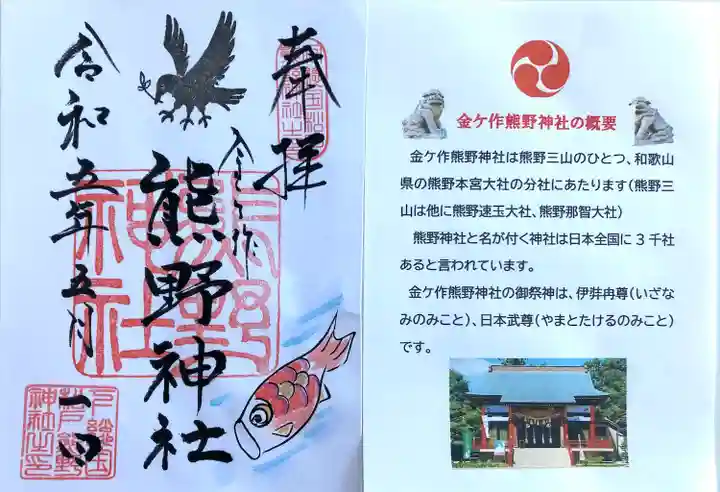 奉拝
金ケ作
熊野神社
令和五年五月一四
金ケ作熊野神社の概要
金ケ作熊野神社は熊野三山のひとつ、和歌山
県の熊野本宮大社の分社にあたります(熊野三
山は他に熊野速玉大社、熊野那智大社)
熊野神社と名が付く神社は日本全国に3千社
あると言われています。
金ケ作熊野神社の御祭神は、伊弉冉尊(いざな
みのみこと)、日本武尊(やまとたけるのみこと)
です。